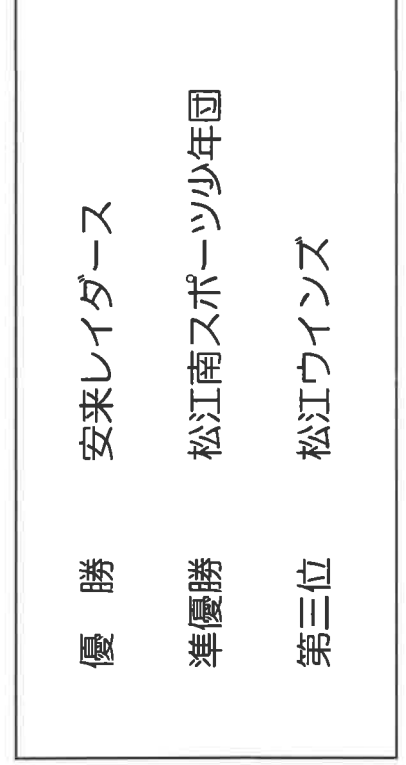 優 勝 安来レイダース
準優勝 松江南スポーツ少年団
第三位 松江ウインズ